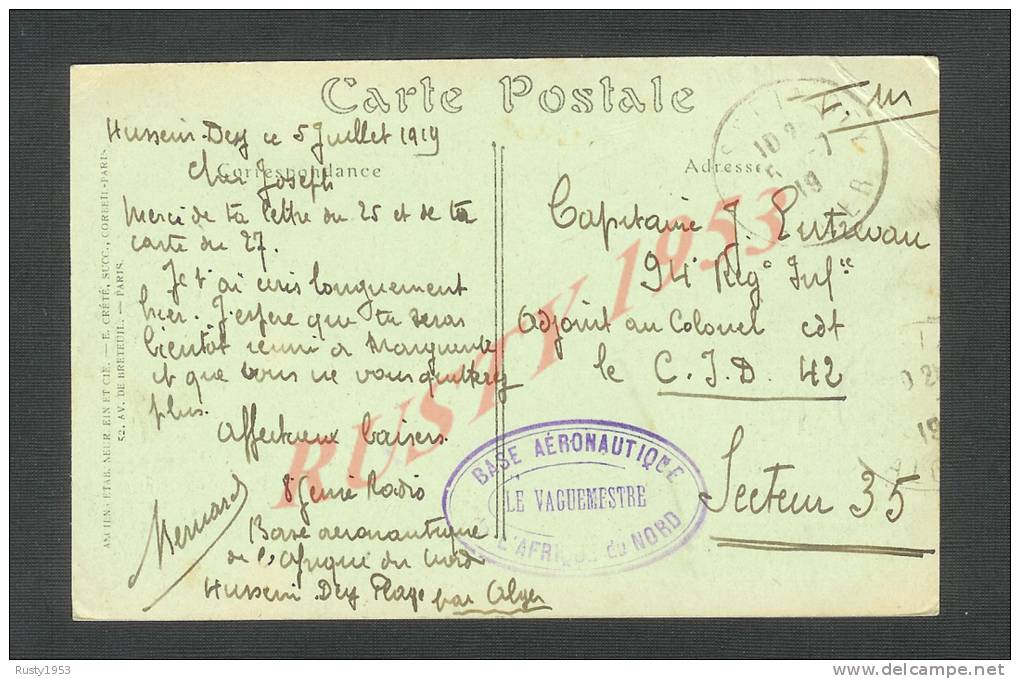 Carte Postale
F. M
Hussein-Dey ce 5 Juillet 1919
Correspondance
Adresse
Cher Joseph
Merci de ta lettre du 25 et de ta
carte du 27.
Je t'ai écris longuement
hier. J'espère que tu seras
bientôt réuni à Marguerite
et que vous ne vous quitterez
plus.
Affectueux baisers.
Bernard
8e Génie Radio
Base aéronautique
de l'Afrique du Nord
Hussein Dey Plage par Alger
Capitaine J.
94 Regt Infie
adjoint au Colonel cdt
le C.I.D. 42
Secteur 35
BASE AÉRONAUTIQUE
LE VAGUEMESTRE
L'AFRIQUE du NORD
ANCIEN. ETAB. NEUR EIN ET CIE. — E. CRÉTÉ, SUCC., CORBEIL-PARIS
52, AV. DE BRETEUIL. — PARIS.
RUSTY 1953
Rusty1953
delcampe.net